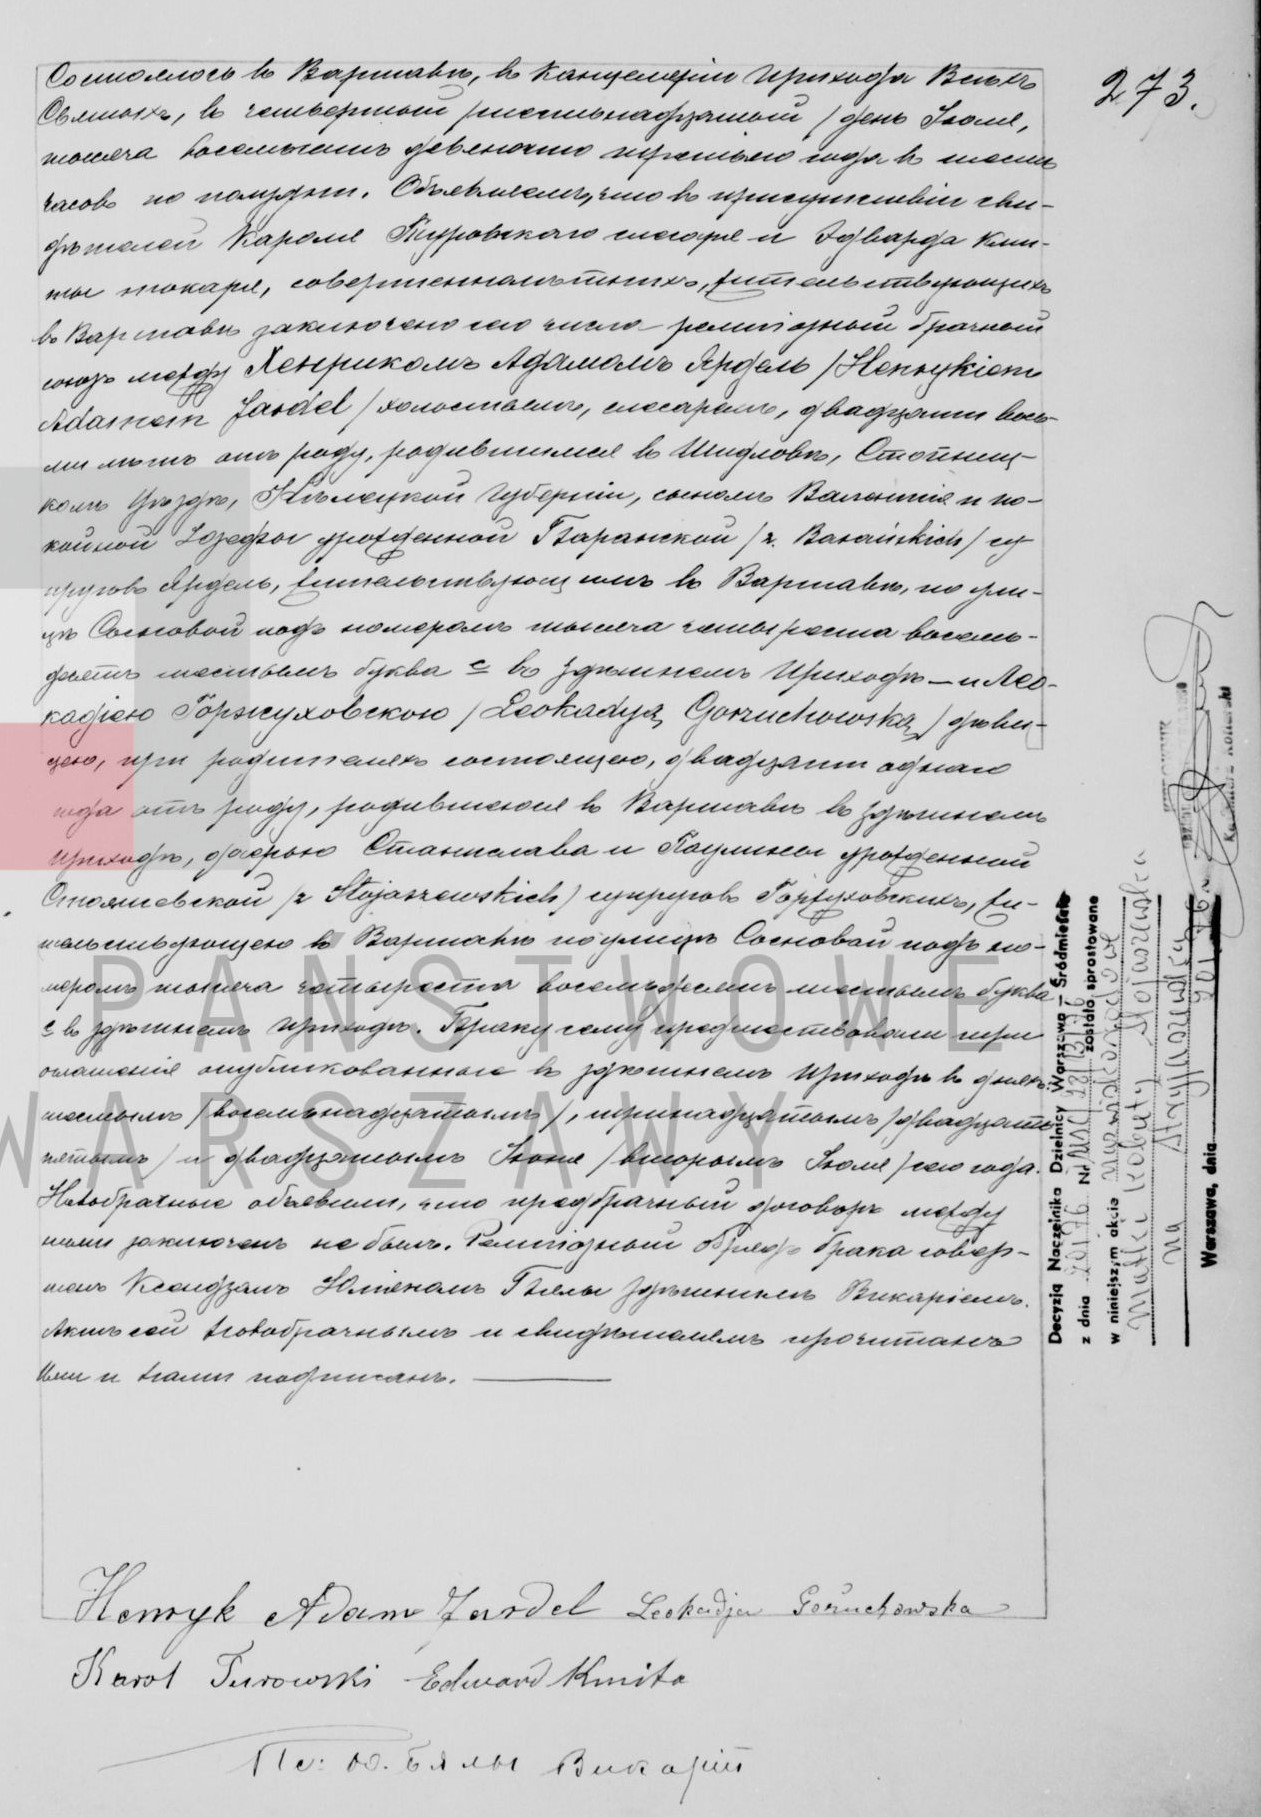 273.
Состоялось въ Варшавѣ, въ Канцеляріи Прихода Всѣхъ
Святыхъ, въ четвертый /шестьнадцатый/ день Іюля,
тысяча восемьсотъ девяносто третьяго года въ шесть
часовъ по полудни. Объявляемъ, что въ присутствіи сви-
дѣтелей Кароля Туровскаго слесаря и Эдварда Кми-
ты токаря, совершеннолѣтнихъ, жительствующихъ
въ Варшавѣ заключено сего числа религіозный брачный
союзъ между Хенрикомъ Адамомъ Ярдель /Henrykiem
Adamem Jardel/ холостымъ, слесаремъ, двадцати вось-
ми лѣтъ отъ роду, родившимся въ Шидловѣ, Стопниц-
комъ Уѣздѣ, Кѣлецкой Губерніи, сыномъ Валентія и по-
койной Юзефы урожденной Баранской /z Barańskich/ су
пруговъ Ярдель, жительствующимъ въ Варшавѣ, по ули-
цѣ Сосновой подъ номеромъ тысяча четыреста восемь-
десятъ шестымъ буква с въ здѣшнемъ Приходѣ — и Лео-
кадіею Горжуховскою /Leokadyą Gorzuchowską/ дѣви-
цею, при родителяхъ состоящею, двадцати однаго
года отъ роду, родившеюся въ Варшавѣ въ здѣшнемъ
Приходѣ, дочерью Станислава и Паулины урожденной
Стояшевской /z Stojaszewskich/ супруговъ Горжуховскихъ, жи-
тельствующею въ Варшавѣ по улицѣ Сосновой подъ но-
меромъ тысяча четыреста восемьдесятъ шестымъ буква
с въ здѣшнемъ Приходѣ. Браку сему предшествовали три
оглашенія опубликованные въ здѣшнемъ Приходѣ въ дняхъ
шестымъ /восемьнадцатымъ/, тринадцатымъ /двадцать
пятымъ/ и двадцатымъ Іюня /вторымъ Іюля/ сего года.
Новобрачные объявили, что предбрачный договоръ между
ними заключенъ не былъ. Религіозный обрядъ брака совер-
шенъ Ксендзомъ Юліяномъ Бялы здѣшнимъ Викаріемъ.
Актъ сей новобрачнымъ и свидѣтелямъ прочитанъ
Ими и нами подписанъ.
Henryk Adam Jardel Leokadja Gorzuchowska
Karol Turowski Edward Kmita
Кс: Ю. Бялы Викарій
Decyzją Naczelnika Dzielnicy Warszawa – Śródmieście
z dnia Nr zostało sprostowane
w niniejszym akcie nazwisko rodowe
matki kobiety Stojaszewska
na
Warszawa, dnia
PAŃSTWOWE
WARSZAWY